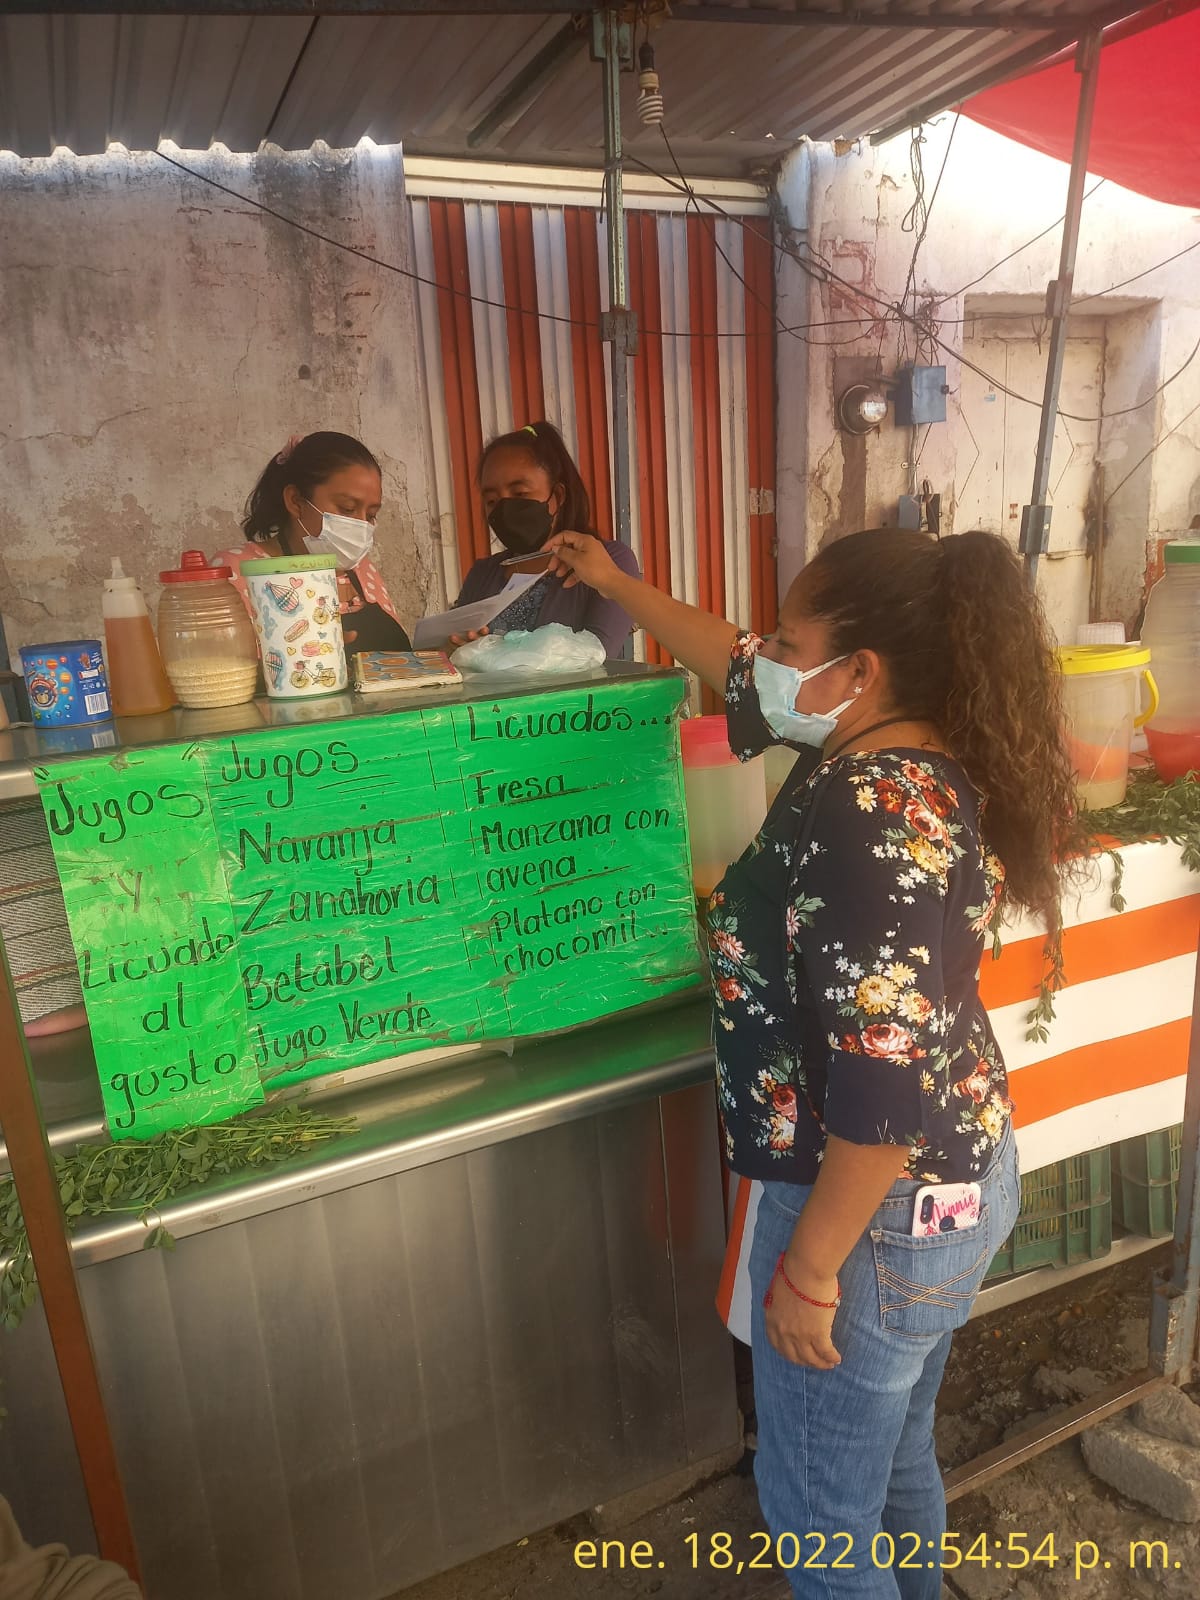 Jugos
y
Licuado
al
gusto
Jugos...
Naranja
Zanahoria
Betabel
Jugo Verde
Licuados...
Fresa...
Manzana con
avena...
Platano con
chocomil...
Minnie
ene. 18,2022 02:54:54 p. m.